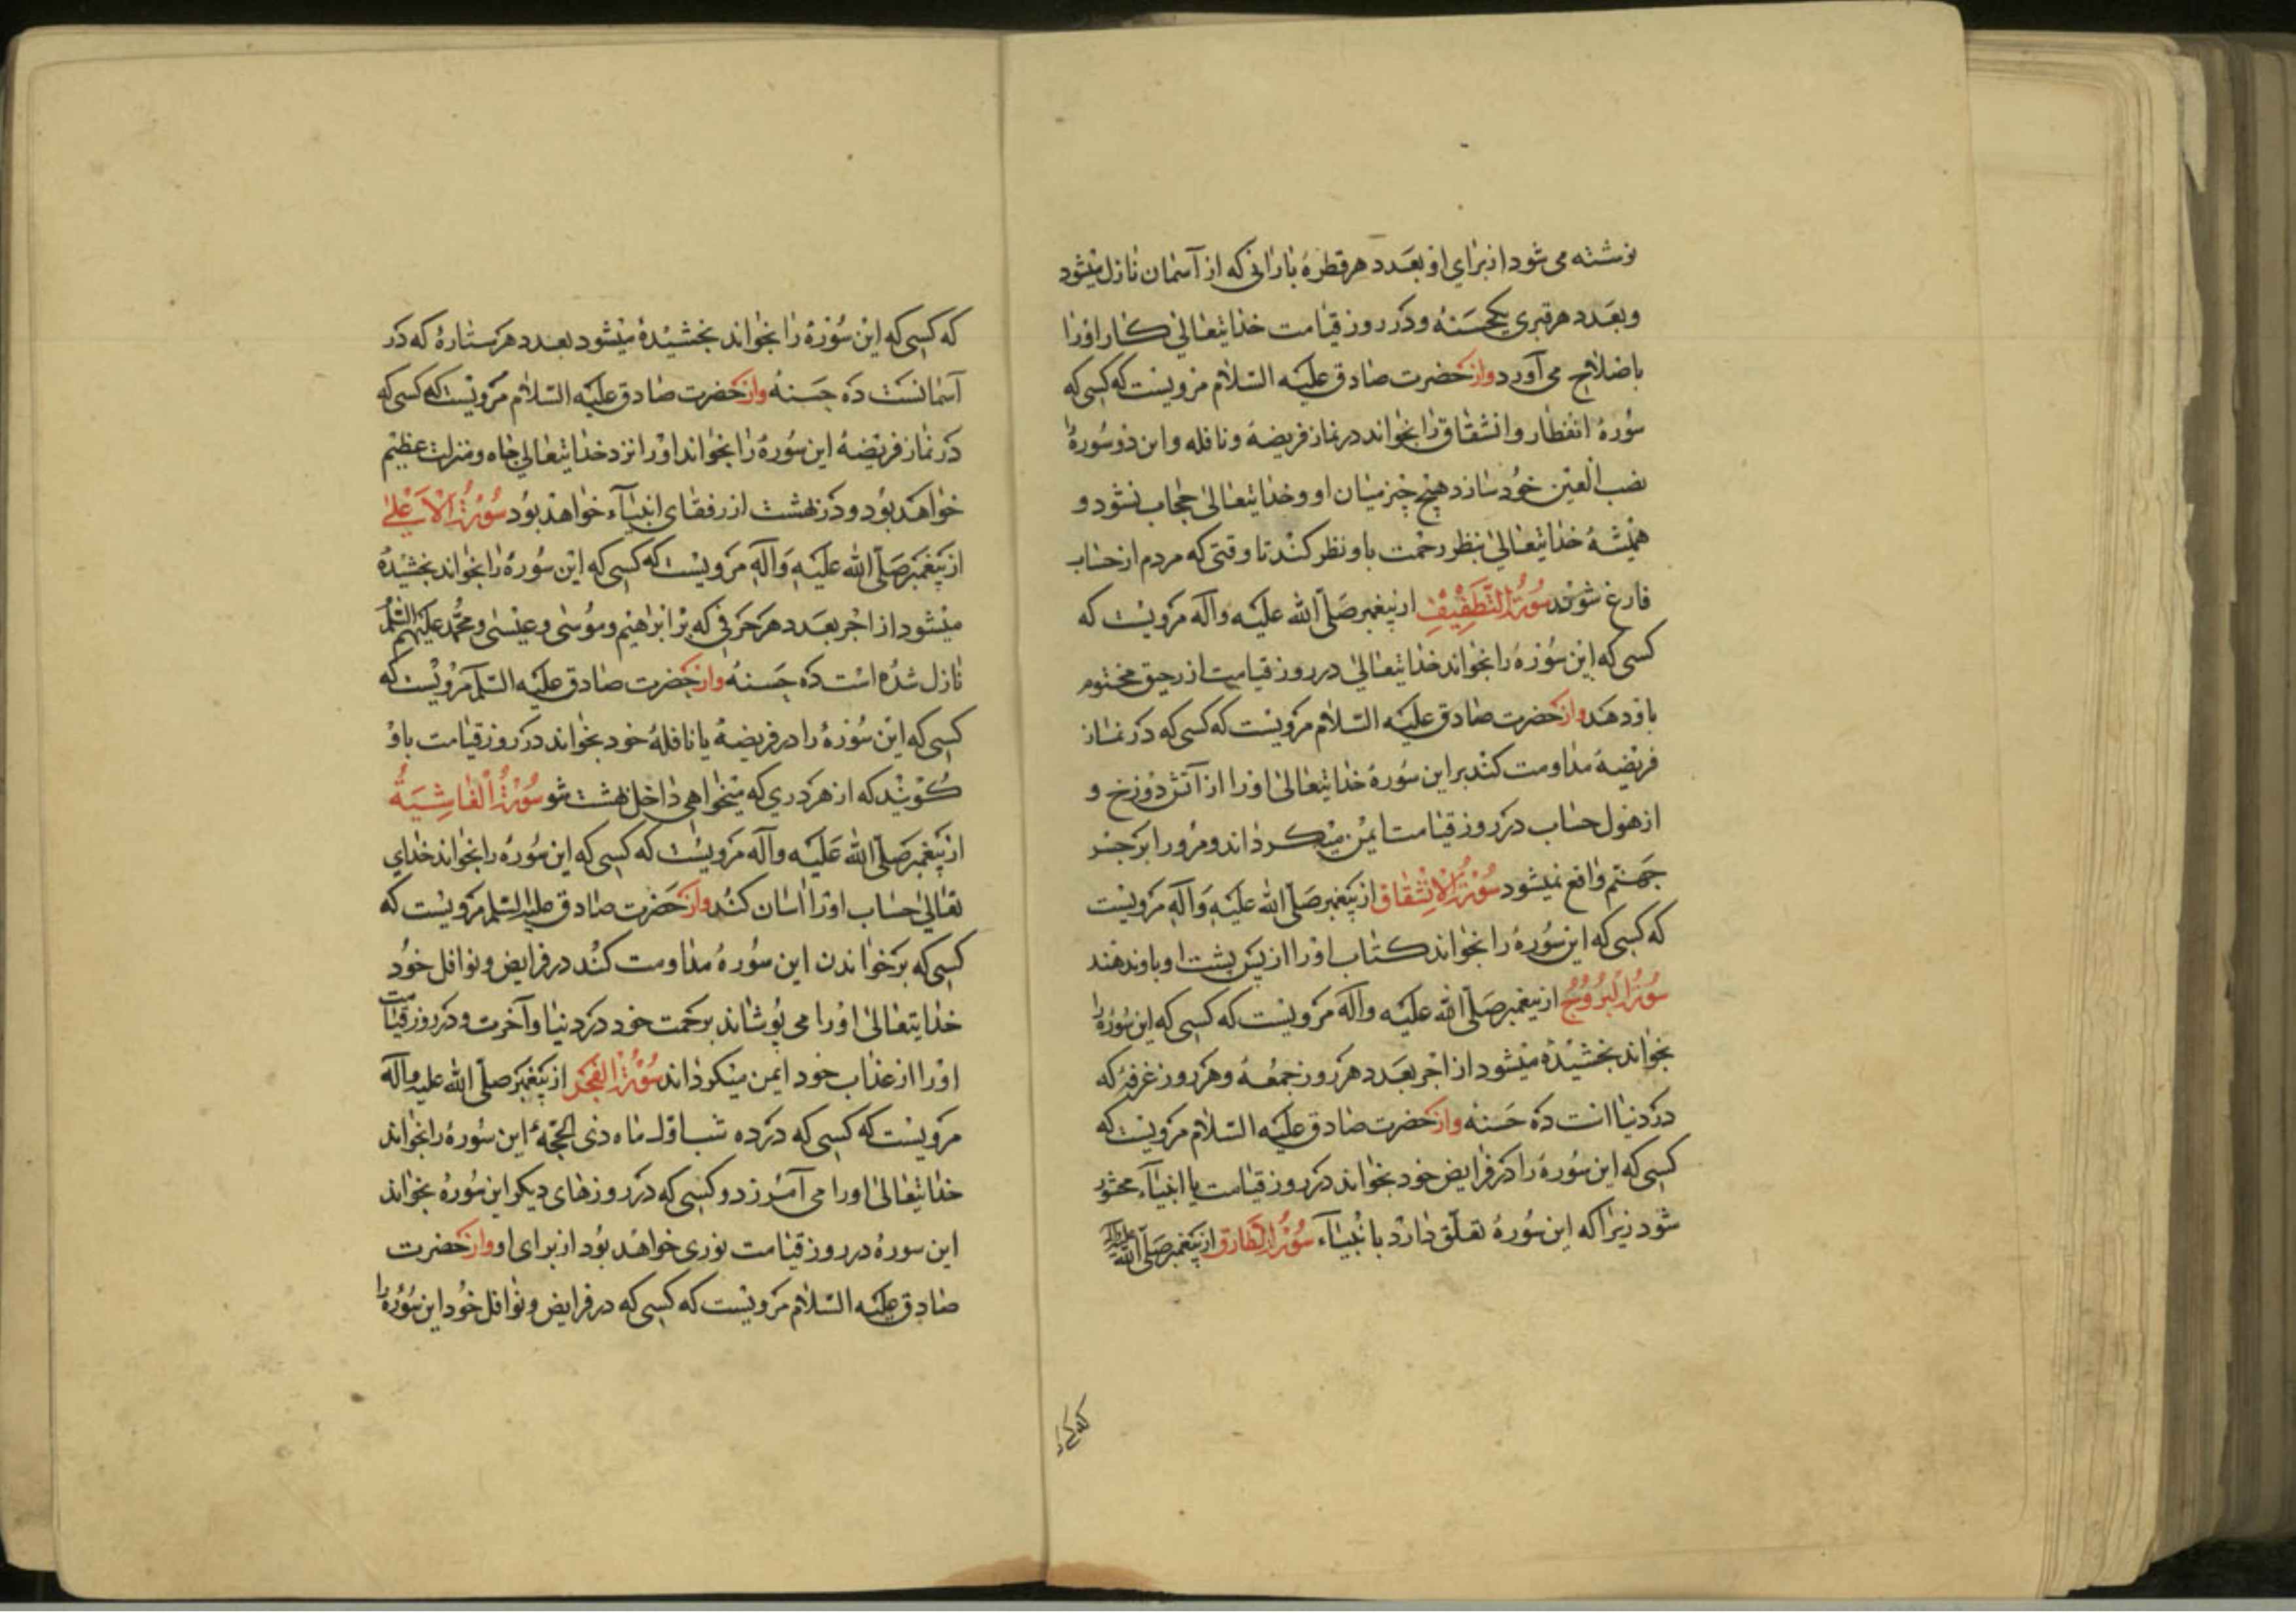 نوشته می شود از برای او بعدد هر قطرهٔ بارانی که از آسمان نازل میشود
و بعدد هر قبری یکحسنه و در روز قیامت خدایتعالی کار اورا
باصلاح می آورد واز حضرت صادق علیه السّلام مرویست که کسی که
سورهٔ انفطار و انشقاق را بخواند در نماز فریضه و نافله و این دو سوره را
نصب العین خود سازد هیچ چیز میان او و خدایتعالی حجاب نشود و
همیشه خدایتعالی بنظر رحمت باو نظر کند تا وقتی که مردم از حساب
فارغ شوند سورة التطفیف از پیغمبر صلّی الله علیه وآله مرویست که
کسی که این سوره را بخواند خدایتعالی در روز قیامت از رحیق مختوم
باو دهد واز حضرت صادق علیه السّلام مرویست که کسی که در نماز
فریضه مداومت کند بر این سوره خدایتعالی اورا از آتش دوزخ و
از هول حساب در روز قیامت ایمن میکرداند و مرور او بر جسر
جهنّم واقع نمیشود سورة الانشقاق از پیغمبر صلّی الله علیه وآله مرویست
که کسی که این سوره را بخواند کتاب اورا از پس پشت او باو ندهند
سورة البروج از پیغمبر صلّی الله علیه وآله مرویست که کسی که این سوره را
بخواند بخشیده میشود از اجر بعدد هر روز جمعه و هر روز عرفه که
در دنیا است ده حسنه واز حضرت صادق علیه السّلام مرویست که
کسی که این سوره را در فرایض خود بخواند در روز قیامت با انبیآء محشور
شود زیرا که این سوره تعلّق دارد بانبیآء سورة الطارق از پیغمبر صلّی الله علیه وآله
که کسی که این سوره را بخواند بخشیده میشود بعدد هر ستاره که در
آسمانست ده حسنه واز حضرت صادق علیه السّلام مرویست که کسی که
در نماز فریضه این سوره را بخواند اورا نزد خدایتعالی جاه و منزلت عظیم
خواهد بود و در بهشت از رفقای انبیآء خواهد بود سورة الاعلی
از پیغمبر صلّی الله علیه وآله مرویست که کسی که این سوره را بخواند بخشیده
میشود از اجر بعدد هر حرفی که بر ابراهیم و موسی و عیسی و محمّد علیهم السّلم
نازل شده است ده حسنه واز حضرت صادق علیه السّلم مرویست که
کسی که این سوره را در فریضه یا نافلهٔ خود بخواند در روز قیامت باو
کویند که از هر دری که میخواهی داخل بهشت شو سورة الغاشیة
از پیغمبر صلّی الله علیه وآله مرویست که کسی که این سوره را بخواند خدای
تعالی حساب اورا اسان کند واز حضرت صادق علیه السّلم مرویست که
کسی که بر خواندن این سوره مداومت کند در فرایض و نوافل خود
خدایتعالی اورا می پوشاند برحمت خود در دنیا و آخرت و در روز قیامت
اورا از عذاب خود ایمن میکرداند سورة الفجر از پیغمبر صلّی الله علیه وآله
مرویست که کسی که در ده شب اوّل ماه ذی الحجّه این سوره را بخواند
خدایتعالی اورا می آمرزد و کسی که در روزهای دیکر این سوره بخواند
این سوره در روز قیامت نوری خواهد بود از برای او واز حضرت
صادق علیه السّلام مرویست که کسی که در فرایض و نوافل خود این سوره را